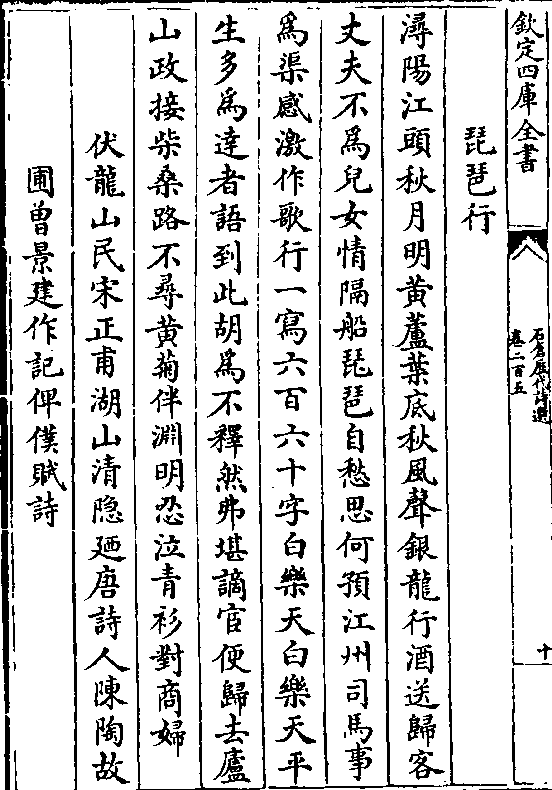 欽定四庫全書
石倉歷代詩選
卷二百五
十
琵琶行
潯陽江頭秋月明黃蘆葉底秋風聲銀龍行酒送歸客
丈夫不爲兒女情隔船琵琶自愁思何預江州司馬事
爲渠感激作歌行一寫六百六十字白樂天白樂天平
生多爲達者語到此胡爲不釋然弗堪謫官便歸去廬
山政接柴桑路不尋黃菊伴淵明忍泣青衫對商婦
伏龍山民宋正甫湖山清隐廼唐詩人陳陶故
圃曾景建作記俾僕賦詩